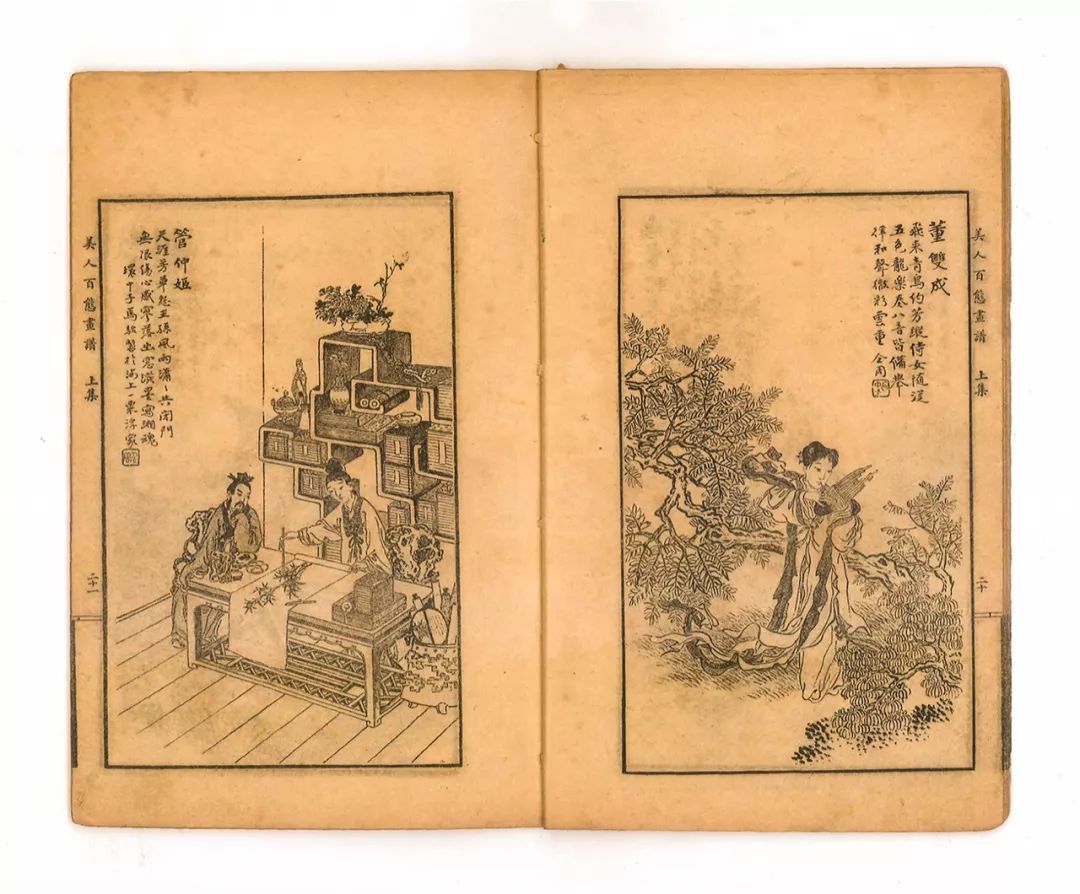 美人百態畫譜 上集
二十
董雙成
飛來青鳥約芳蹤侍女隨從
五色龍樂奏八音皆備舉
律和聲徹彩雲重
管仲姬
天涯芳草怨王孫風雨瀟〻共閉門
無限傷心感零落幽窓潑墨寫湘魂
環中子馬駘製於海上一粟浮家
美人百態畫譜 上集
二十一